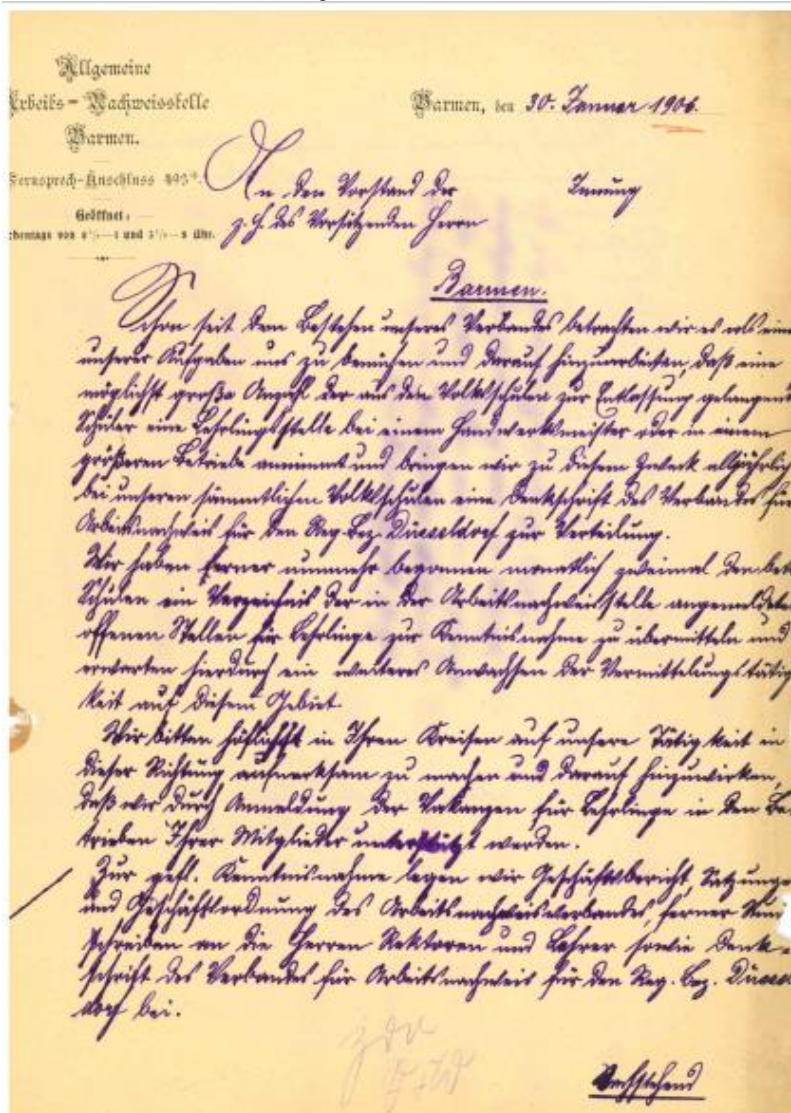 Allgemeine
Arbeits-Nachweisstelle
Barmen.
Fernsprech-Anschluss 493
Geöffnet:
Barmen, den 30. Januar 1906.
An den Vorstand der Innung
z. H. des Vorsitzenden Herrn
Barmen.
Schon seit dem Bestehen unseres Verbandes betrachten wir es als eine
unserer Aufgaben uns zu bemühen und darauf hinzuarbeiten, daß eine
möglichst große Anzahl der aus den Volksschulen zur Entlassung gelangend
Schüler eine Lehrlingsstelle bei einem Handwerksmeister oder in einem
größeren Betriebe annimmt und bringen wir zu diesem Zweck alljährlich
bei unseren sämmtlichen Volksschulen eine Denkschrift des Verbandes für
Arbeitsnachweis für den Reg. Bez. Düsseldorf zur Verteilung.
Wir haben ferner nunmehr begonnen monatlich zweimal den betr
Schulen ein Verzeichnis der in der Arbeitsnachweisstelle angemeldeten
offenen Stellen für Lehrlinge zur Kenntnisnahme zu übermitteln und
erwarten hierdurch ein weiteres Anwachsen der Vermittelungstätig
keit auf diesem Gebiet.
Wir bitten höflichst in Ihren Kreisen auf unsere Tätigkeit in
dieser Richtung aufmerksam zu machen und darauf hinzuwirken,
daß wir durch Anmeldung der Vakanzen für Lehrlinge in den Be
trieben Ihrer Mitglieder unterstützt werden.
Zur gefl. Kenntnisnahme legen wir Geschäftsbericht, Satzungen
und Geschäftsordnung des Arbeitsnachweisverbandes, ferner Rund
schreiben an die Herren Rektoren und Lehrer sowie Denk-
schrift des Verbandes für Arbeitsnachweis für den Reg. Bez. Düssel
dorf bei.
Nachstehend